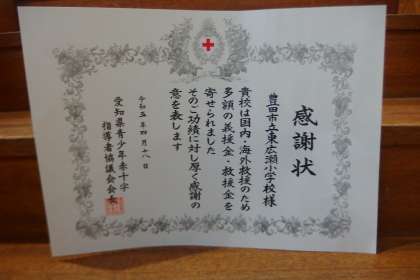 感謝状
豊田市立東広瀬小学校様
貴校は国内・海外救援のため
多額の義援金・救援金を
寄せられました
そのご功績に対し厚く感謝の
意を表します
令和五年四月十八日
愛知県青少年赤十字
指導者協議会会長